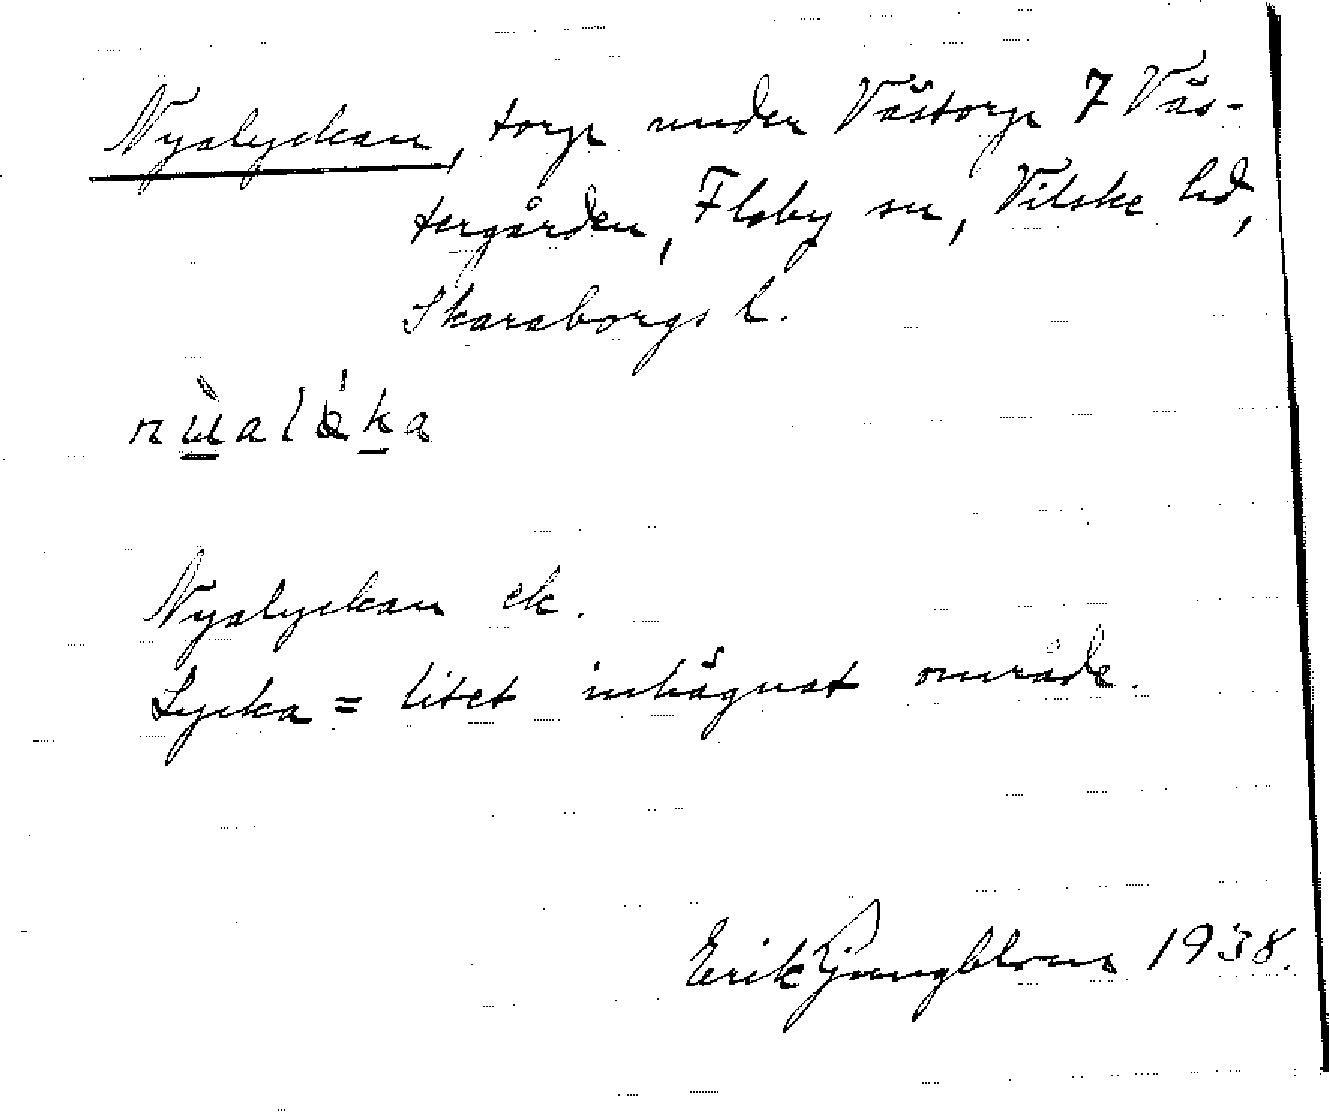 Nyalyckan, torp under Västorp 7 Väs-
tergården, Floby sn, Vilske hd,
Skaraborgs l.
Nyalyckan ek.
Lycka = litet inhägnat område.
Erik Ljungblom 1938.